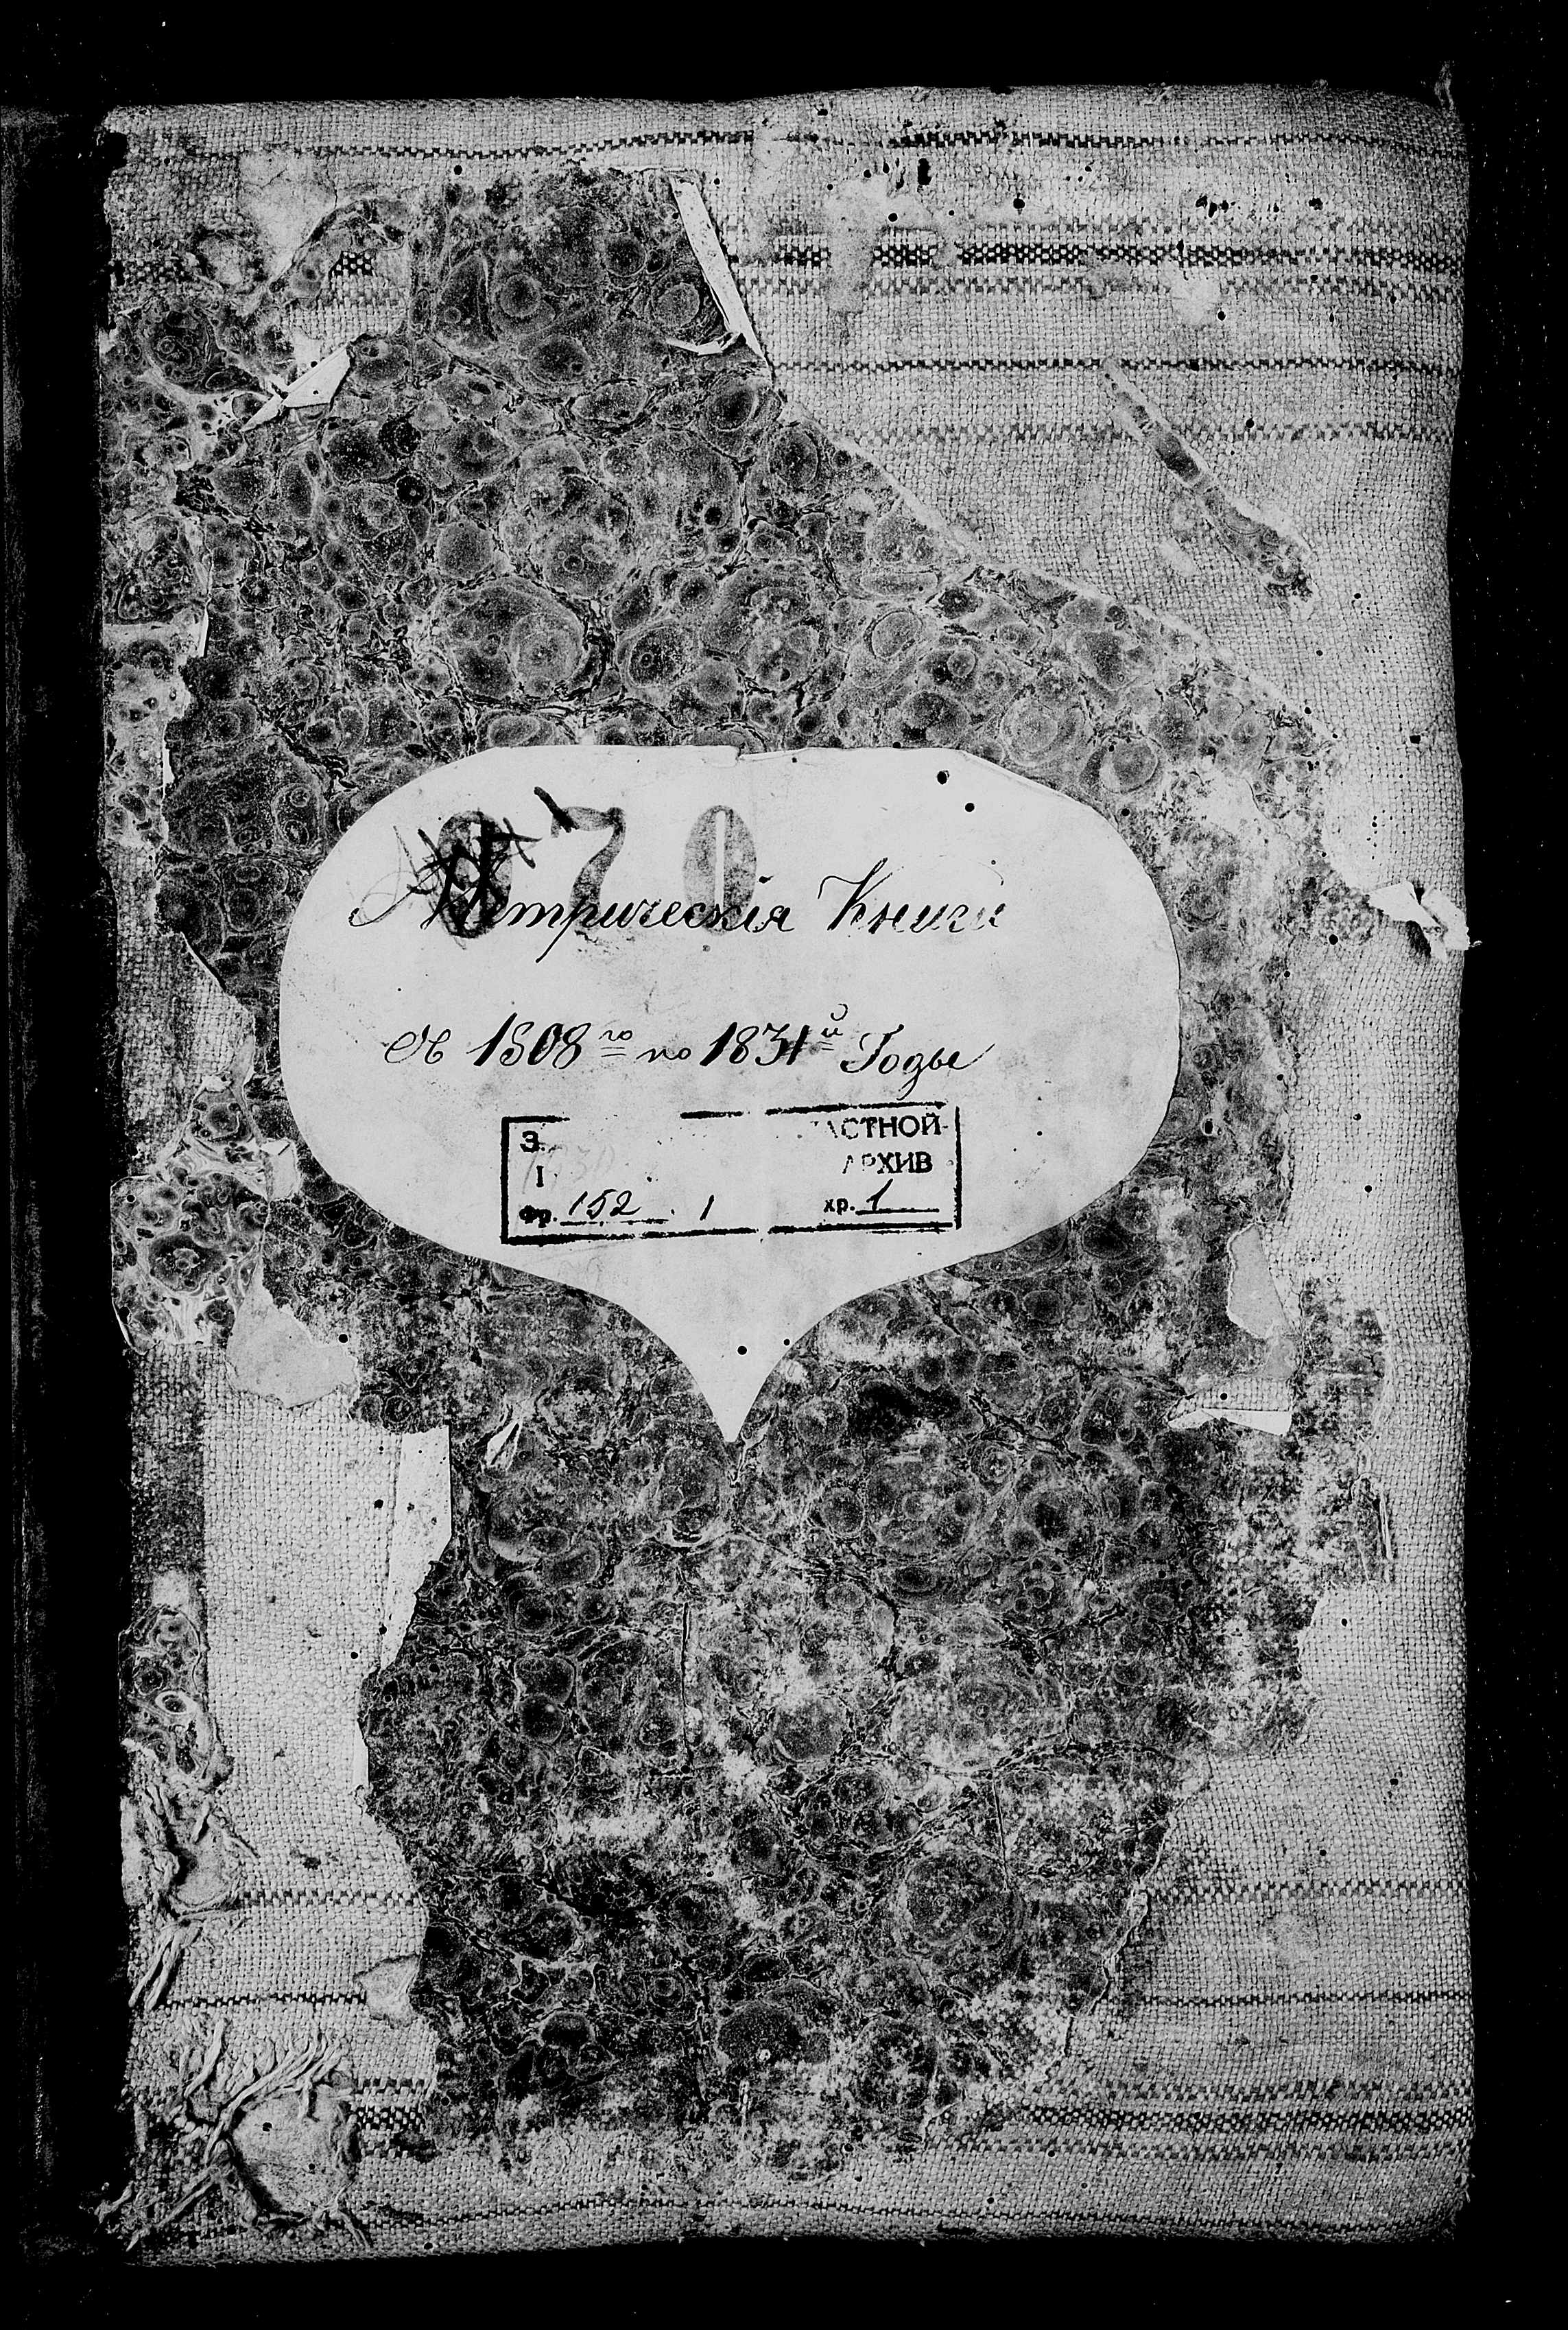 970
Метрическія Книги
Съ 1808го по 1831й Годы
З. АСТНОЙ
І. АРХИВ
Фр. 152 . 1 хр. 1